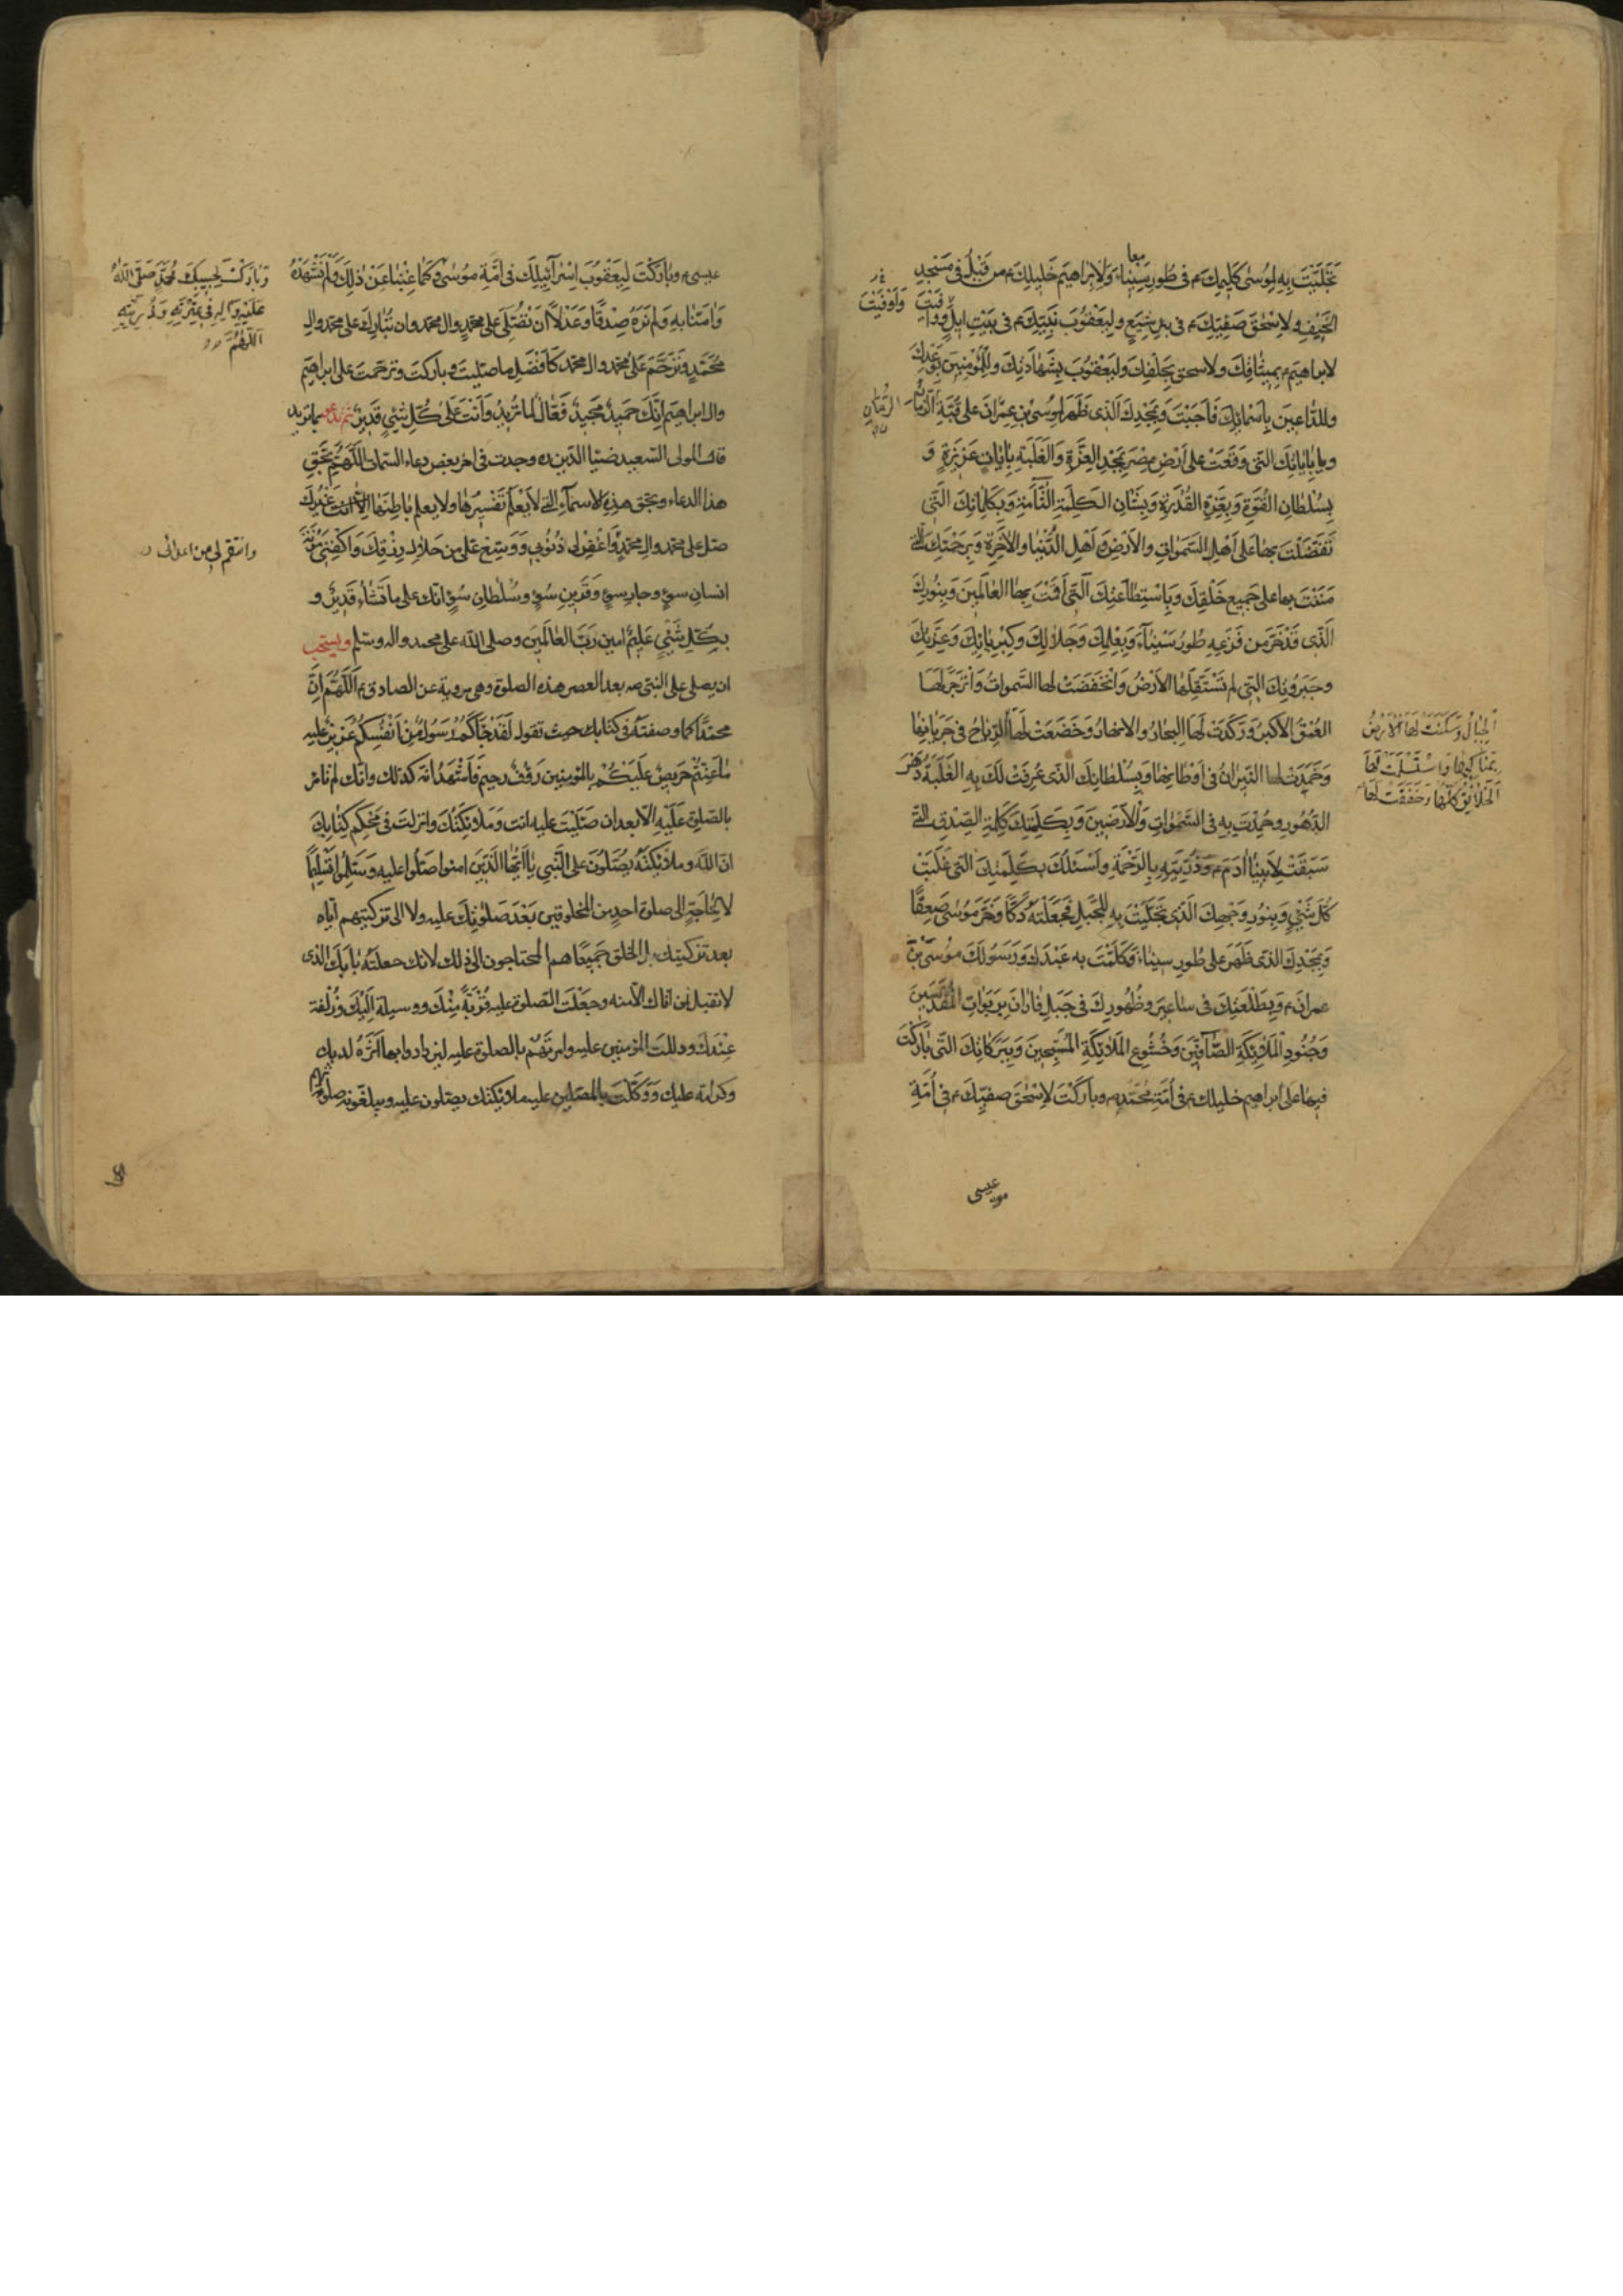 معا
تَجَلَّيْتَ بِهِ لِمُوسٰى كَلِيمِكَ ؑ فى طُورِ سَيْنٰاءَ وَلِاِبْرٰاهيمَ خَليلِكَ ؑ مِن قَبْلُ فى مَسْجِدِ
الْخَيْفِ وَلِاِسْحٰقَ صَفِيِّكَ ؑ فى بِئرِ شِيَعٍ وليَعْقُوبَ نَبِيِّكَ ؑ فى بَيْتِ ايلٍ وَوَاَفَيْتَ
وَاَوْفَيْتَ
لابراهيم ؑ بِميثٰاقِكَ ولاسحق بِحَلْفِكَ وَليَعْقُوبَ بِشَهٰادَتِكَ وللمُؤْمِنينَ بِوَعْدِكَ
وللدّاعينَ بِاَسْمٰائِكَ فَاَجَبْتَ وَبِمَجْدِكَ الَّذى ظَهَرَ لِموُسىَ بْنِ عِمْرانَ على قُبَّةِ الزَّمٰانِ
الرُّمّٰانِ
وبِاٰيٰاتِكَ الَّتى وَقَعَتْ على اَرْضِ مِصْرَ بِمَجْدِ العِزَّةِ وَالْغَلَبَةِ بِاٰيٰاتٍ عَزيزَةٍ وَ
بِسُلْطٰانِ القُوَّةِ وَبِعِزَّةِ القُدْرَةِ وَبِشَأنِ الكَلِمَةِ التّٰامَّةِ وَبِكَلِمٰاتِكَ الَّتى
تَفَضَّلْتَ بها على اَهْلِ السَّمٰوٰاتِ والاَرْضِ وَ اَهْلِ الدُّنْيٰا والاٰخِرَةِ وَبِرَحْمَتِكَ الّتى
مَنَنْتَ بها على جَميعِ خَلْقِكَ وَبِاسْتِطٰاعَتِكَ الَّتى اَقَمْتَ بِهَا العٰالَمينَ وَبِنُورِكَ
الَّذى قَدْ خَرَّ مِن فَزَعِهِ طُورُ سَيْنٰاءَ وَبِعِلْمِكَ وَجَلاٰلِكَ وَكِبْرِيٰائِكَ وَعِزَّتِكَ
وجَبَرُوتِكَ الَّتى لم تَسْتَقِلَّهَا الاَرْضُ وَانْخَفَضَتْ لها السَّمٰوٰاتُ وَانْزَجَرَ لَهَا
العُمْقُ الاَكْبَرُ وَرَكَدَتْ لَهَا البِحٰارُ والانهٰارُ وَخَضَعَتْ لَهَا الرِّيٰاحُ فى جَرَيٰانِهٰا
الْجِبٰالُ وَسَكَنَتْ لَهَا الاَرْضُ
بِمَنٰاكِبِهٰا وَاسْتَسْلَمَتْ لَهَا
الْخَلاٰئِقُ كُلُّهٰا وَخَفَقَتْ لَهَا
وَخَمَدَتْ لها النّيرٰانُ فى اَوْطٰانِهٰا وَبِسُلْطٰانِكَ الَّذى عُرِفَتْ لَكَ بِهِ الغَلَبَةُ دَهْرَ
الدُّهُورِ وحُمِدْتَ بِهِ فى السَّمٰوٰاتِ وَالاَرَضينَ وَبِكَلِمَتِكَ كَلِمَةِ الصِّدْقِ الّتى
سَبَقَتْ لِاَبِينٰا اٰدَمَ ؑ وَذُرِّيَّتِهِ بِالرَّحْمَةِ واَسْئَلُكَ بِكَلِمَتِكَ الَّتى غَلَبَتْ
كُلَّ شَىْءٍ وَبِنُورِ وَجْهِكَ الَّذى تَجَلَّيْتَ بِهِ لِلْجَبَلِ فَجَعَلْتَهُ دَكًّا وَخَرَّ مُوسٰى صَعِقًا
وَبِمَجْدِكَ الَّذى ظَهَرَ على طُورِ سيناءَ فَكَلَّمْتَ به عَبْدَكَ وَرَسُولَكَ موُسَى بْنَ
عمرانَ ؑ وَبِطَلْعَتِكَ فى سٰاعيرَ وظُهُورِكَ فى جَبَلِ فٰارٰانَ بِرَبَوٰاتِ المُقَدَّسينَ
وَجُنُودِ الْمَلاٰئِكَةِ الصّٰافّينَ وَخُشُوعِ المَلاٰئِكَةِ الْمُسَبِّحينَ وَبِبَرَكٰاتِكَ الَّتى بٰارَكْتَ
فيهٰا على ابراهيم خليلك ؑ فى اُمَّةِ مُحَمَّدٍ ؐ وبٰارَكْتَ لِاسْحٰقَ صفيِّكَ ؑ فى اُمَّةِ
عيسى
عيسى ؑ وبٰارَكْتَ لِيَعْقُوبَ اِسْرٰائيلِكَ فى اُمَّةِ مُوسٰى ؑ وَكَمٰا غِبْنٰا عَنْ ذٰلِكَ وَلَمْ نَشْهَدْهُ
وَبٰارَكْتَ لِحَبيبِكَ مُحَمَّدٍ صَلَّى اللّٰهُ
عَلَيْهِ وَاٰلِهِ فى عِتْرَتِهِ وَذُرِّيَّتِهِ
اَللّٰهُمَّ
وَاٰمَنّٰا بِهِ وَلَم نَرَهُ صِدْقًا وَعَدْلاً اَنْ تُصَلِّىَ على مُحمَّدٍ وال محمد وان تُبٰارِكَ على محمد وال
مُحَمَّدٍ وَتَرَحَّمَ عَلىٰ مُحمد وال محمد كَاَفْضَلِ ما صَلَّيتَ وبٰاركتَ وترحّمتَ على ابراهيمَ
وال ابراهيمَ اِنَّكَ حَميدٌ مَجيدٌ فَعّٰالٌ لِمٰا تُريدُ وَاَنْتَ عَلىٰ كُلِّ شَىْءٍ قَديرٌ ثم تدعو بما تريد
قال المولى السّعيد ضيٰا الدّين ره وجدت فى اخر بعض دعاء السمات اَللّٰهُمَّ بِحَقِّ
هذا الدعاء وبحقّ هذه الاسماءِ التى لا يَعْلَمُ تَفْسيرَهٰا ولا يعلم بٰاطِنَهٰا الاّ اَنْتَ غَيْرُكَ
صلّ على محمد والِ محمّدٍ وَاغْفِرْ لى ذُنُوبى وَوَسِّعْ عَلىَّ من حَلاٰلِ رِزْقِكَ وَاكْفِنى مَؤُنَةَ
وانتقم لى من اعدائى
انسانِ سوءٍ وجارِ سوءٍ وَقَرينِ سُوءٍ وَسُلطانِ سُوءٍ انّك على ما تَشٰاءُ قَديرٌ و
بِكلِّ شَىْءٍ عَليمٌ امين رَبَّ العٰالَمينَ وصلى اللّٰه على محمد واله وسلم ويستحب
ان يصلى على النبى ص بعد العصر هذه الصلوة وهى مروية عن الصادق ؑ اَللّٰهُمَّ اِنَّ
محمّدًا كما وصفتَهُ فى كتابك حيث تقول لَقَدْ جٰاءَكُمْ رَسُولٌ مِنْ اَنْفُسِكُمْ عَزيزٌ عليهِ
مٰا عَنِتُّمْ حَريصٌ عَلَيْكُمْ بِالمؤمنين رَؤُفٌ رحيمٌ فَاَشْهَدُ انّه كذلك وانّك لم تأمر
بالصّلوةِ عَلَيْهِ الاّ بعد ان صَلَّيْتَ عليه انت وَمَلاٰئِكَتُكَ وانزلتَ فى مُحْكَمِ كِتٰابِكَ
انّ اللّٰهَ وملاٰئِكَتَهُ يُصَلُّونَ على النَّبىِّ يٰا اَيُّهَا الَّذينَ امنوا صَلُّوا عليه وَسَلِّمُوا تَسْليمًا
لا لِحٰاجَةٍ الى صلوة احدٍ من المخلوقينَ بَعْدَ صَلوٰتِكَ عليه ولا الى تزكيتهم ايّاه
بعد تزكيتك بل الخلق جَميعًا هم المحتاجون الى ذلك لانك جعلتَهُ بٰابَكَ الّذى
لا تقبل لمن اتاك الاّ منه وجَعَلْتَ الصّلوة عليه قُرْبَةً مِنْكَ ووسيلةً اِلَيْكَ وزُلْفَةً
عِنْدَكَ ودللتَ المؤمنين عليه وامرتَهُمْ بالصلوة عليه ليزدادوا بها اَثَرَةً لديك
وكرامةً عليك وَوَكَّلْتَ بالمصَلّين عليه ملائكتك يصلون عليه ويبلّغونه صلوتهم